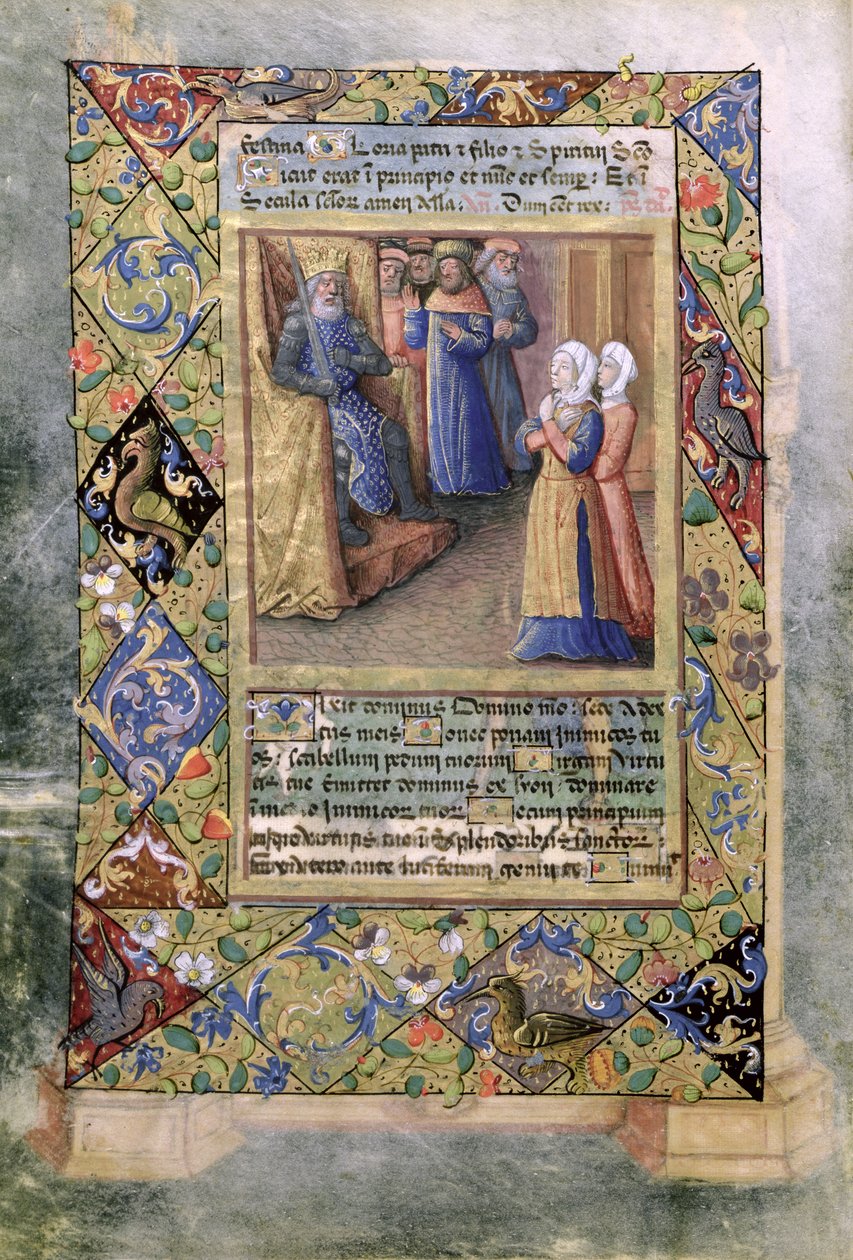 festina Gloria patri et filio et Spiritui Scō
Sicut erat ī principio et nūc et semp: Et ī
Secula sclor amen Alla. Añ. Dum eēt rex: ps dd.
Dixit dominus Domino mō: sede A dex
tris meis Donec ponam Inimicos tu
os: scabellum pedum tuorum Uirgam Uirtu
tis tue Emittet dominus ex syon: dominare
ī medio Inimicor tuor Tecum principium
in die Uirtutis tue: In splendoribus sanctor:
ex Utero ante luciferum genui te